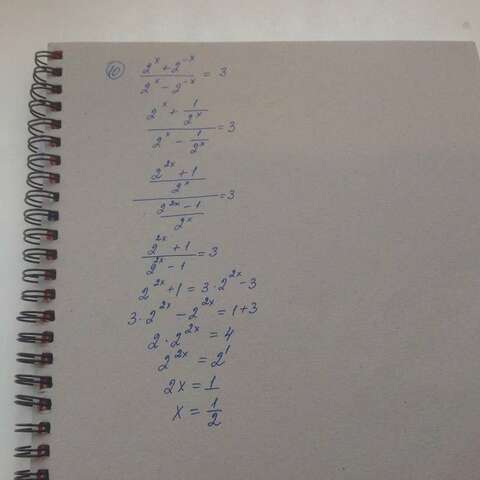 10) (2^x + 2^-x)/(2^x - 2^-x) = 3
(2^x + 1/2^x)/(2^x - 1/2^x) = 3
((2^2x + 1)/2^x)/((2^2x - 1)/2^x) = 3
(2^2x + 1)/(2^2x - 1) = 3
2^2x + 1 = 3 · 2^2x - 3
3 · 2^2x - 2^2x = 1 + 3
2 · 2^2x = 4
2^2x = 2^1
2x = 1
x = 1/2